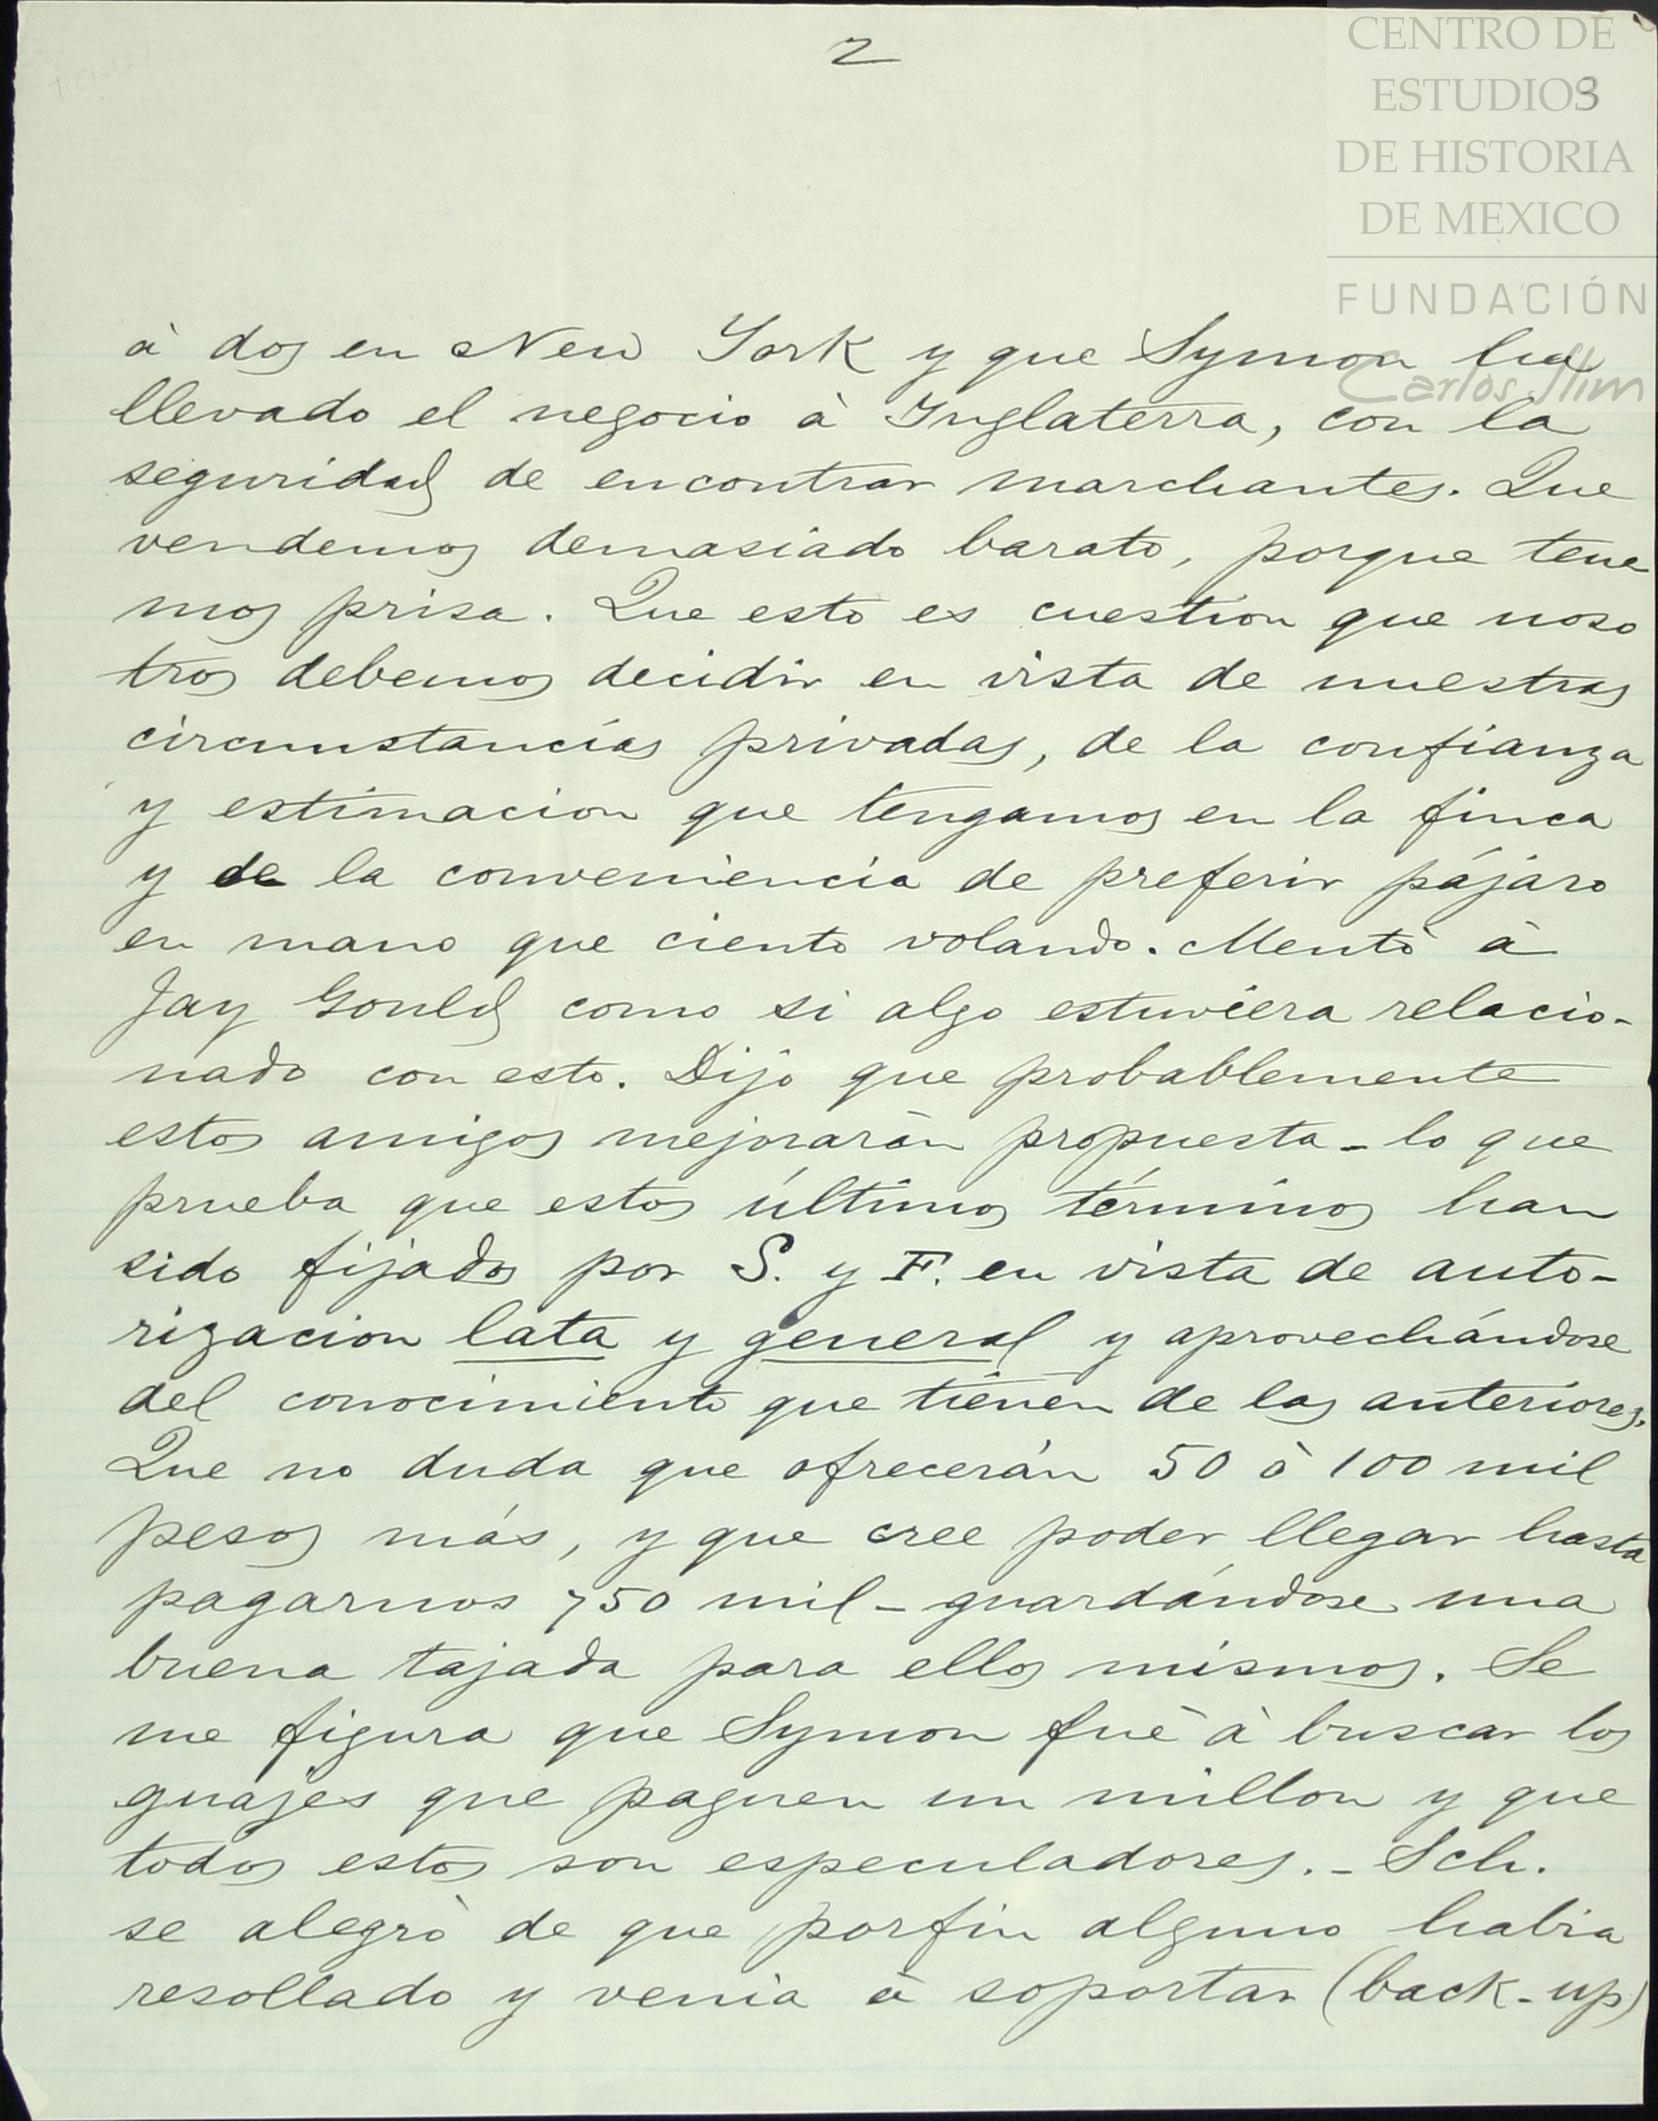 2
CENTRO DE
ESTUDIOS
3
DE HISTORIA
DE MEXICO
FUNDACIÓN
Carlos Slim
à dos en New York y que Symon ha
llevado el negocio à Inglaterra, con la
seguridad de encontrar marchantes. Que
vendemos demasiado barato, porque tene
mos prisa. Que esto es cuestion que noso
tros debemos decidir en vista de nuestras
circunstancias privadas, de la confianza
y estimacion que tengamos en la finca
y de la conveniencia de preferir pájaro
en mano que ciento volando. Mentò à
Jay Gould como si algo estuviera relacio-
nado con esto. Dijo que probablemente
estos amigos mejoraràn propuesta - lo que
prueba que estos últimos términos han
sido fijados por S. y F. en vista de auto-
rizacion lata y general y aprovechándose
del conocimiento que tienen de las anteriores.
Que no duda que ofrecerán 50 ò 100 mil
pesos más, y que cree poder llegar hasta
pagarnos 750 mil - guardándose una
buena tajada para ellos mismos. Se
me figura que Symon fuè à buscar los
guajes que paguen un millon y que
todos estos son especuladores. - Sch.
se alegrò de que porfin alguno habia
resollado y venia à soportar (back-up)